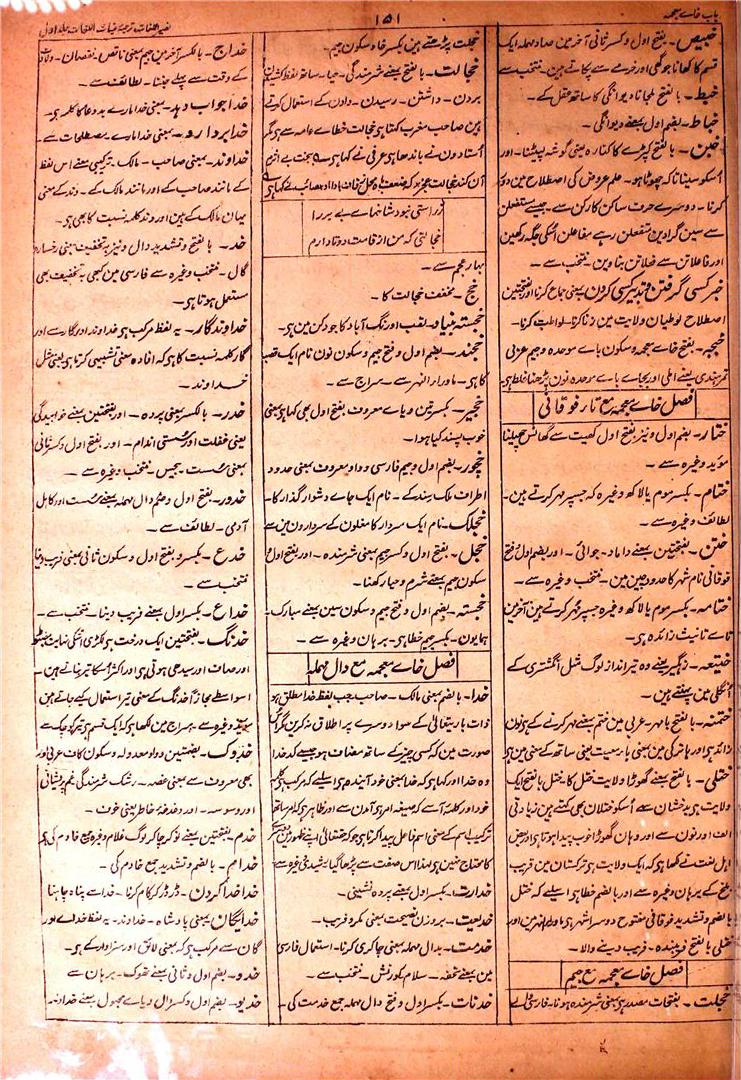 باب خائے معجمہ
۱۵۱
نصیر اللغات ترجمہ غیاث اللغات جلد اول
خبیص۔ بفتح اول و کسر ثانی آخر مین صاد مہملہ ایک
قسم کا کھانا جو گھی اور خرمے سے پکاتے ہین۔ منتخب سے
خبط۔ بالفتح ملجانا دیوانگی کا ساتھ عقل کے۔
خباط۔ بضم اول بمعنے دیوانگی۔
خبن۔ بالفتح کپڑے کا کنارہ یعنی گوشہ لپیٹنا۔ اور
اُسکو سینا تاکہ چھوٹا ہو۔ علم عروض کی اصطلاح مین دور
کرنا۔ دوسرے حرف ساکن کا رکن سے۔ جیسے مستفعلن
سے سین گرادین متفعلن رہے مفاعلن اُسکی جگہ رکھین
اور فاعلاتن سے فعلاتن بناوین۔ منتخب سے۔
خبر کسی گرفتن و تدبیر کسی کردن۔ یعنی جماع کرنا اور بفتحتین
اصطلاح لوطیان ولایت مین زنا کرنا۔ لواطت کرنا۔
خبجہ۔ بفتح خائے معجمہ و سکون بائے موحدہ و جیم عربی
تمر ہندی یعنے املی اور بجائے بائے موحدہ نون پڑھنا غلط ہی
فصل خائے معجمہ مع تاء فوقانی
ختار۔ بضم اول و نیز بفتح اول کھیت سے گھانس چھیلنا
موید وغیرہ سے۔
ختام۔ بکسر موم یا لاکھ وغیرہ کہ جسپر مہر کرتے ہین۔
لطائف وغیرہ سے۔
ختن۔ بفتحتین بمعنے داماد۔ جوائی۔ اور بضم اول و فتح
فوقانی نام شہر کا حدود چین مین۔ منتخب وغیرہ سے۔
ختامہ۔ بکسر موم یا لاکھ وغیرہ جسپر مہر کرتے ہین آخر مین
تائے تانیث زائدہ ہی۔
ختیعہ۔ زہگیر یعنے وہ تیر انداز لوگ مثل انگشتری کے
انگلی مین پہنتے ہین۔
ختمنہ۔ بالفتح بامہر۔ عربی مین ختم بمعنے مہر کرنے کے ہی نون
ختلی۔ بالفتح بمعنے گھوڑا ولایت ختل کا ختل بالفتح ایک
ولایت ہی بدخشان سے اُسکو ختلان بھی کہتے ہین زیادتی
الف اور نون سے اور وہان گھوڑا خوب پیدا ہوتا ہی اور بعض
اہل لغت نے لکھا ہی کہ ایک ولایت ہی ترکستان مین قریب
بلخ کے برہان وغیرہ سے اور بالضم خطا ہی اسلیے کہ ختل
بالضم و تشدید فوقانی مفتوح دوسرا شہر ہی ماوراءالنہر مین اور
ختلی بالفتح فریبندہ۔ فریب دینے والا۔
فصل خائے معجمہ مع جیم
خجلت۔ بفتحات مصدر ہی بمعنی شرمندہ ہونا۔ فارسی والے
خجلت پڑھتے ہین بکسر خا و سکون جیم۔
خجالت۔ بالفتح بمعنے شرمندگی۔ حیا۔ ساتھ لفظ کشیدن
بردن۔ داشتن۔ رسیدن۔ دادن کے استعمال کرتے
ہین صاحب مغرب کہتا ہی خجالت خطائے عامہ سے ہی مگر
اُستادون نے باندھا ہی عرفی نے کہا ہی
زراستی نبود شاخہائے بے بر را
خجالتی کہ من از قامت دوتا دارم
بہار عجم سے۔
خج۔ مخفف خجالت کا۔
خجستہ بنیاد۔ لقب اورنگ آباد کا جو دکن مین ہی۔
خجند۔ بضم اول و فتح جیم و سکون نون نام ایک قصبہ
کا ہی۔ ماوراء النہر سے۔ سراج سے۔
خجیر۔ بکسرتین و یائے معروف بفتح اول بھی کہا ہی بمعنی
خوب پسند کیا ہوا۔
خچور۔ بضم اول و جیم فارسی و واو معروف بمعنی حدود
اطراف ملک ہند کے۔ نام ایک جائے دشوار گذار کا۔
خجلک۔ نام ایک سردار کا مغلون کے سردارون مین سے
خجل۔ بفتح اول و کسر جیم بمعنی شرمندہ۔ اور بفتح اول و
سکون جیم بمعنے شرم و حیا رکھنا۔
خجستہ۔ بضم اول و فتح جیم و سکون سین بمعنے مبارک۔
ہمایون۔ بکسر جیم خطا ہی۔ برہان وغیرہ سے۔
فصل خائے معجمہ مع دال مہملہ
خدا۔ بالضم بمعنی مالک۔ صاحب جب لفظ خدا مطلق ہو
ذات باریتعالیٰ کے سوا دوسرے پر اطلاق نہ کرین مگر اُس
صورت مین کہ کسی چیز کے ساتھ مضاف ہو جیسے کدخدا
وہ خدا اور کہا ہی کہ خدا بمعنی خود آیندہ ہی اسلیے کہ مرکب ہی کلمہ
خود اور کلمۂ آ سے کہ صیغہ امر ہی آمدن سے اور ظاہر ہی کہ امر ساتھ
ترکیب اسم کے معنی اسم فاعل پیدا کرتا ہی چونکہ حق تعالیٰ اپنے ظہور مین دوسرے
کا محتاج نہین ہی لہذا اس صفت سے پڑھا گیا رشیدی وغیرہ سے
خدارت۔ بکسر اول بمعنے پردہ نشینی۔
خدیعت۔ بروزن نصیحت بمعنی مکر و فریب۔
خدمت۔ بدال مہملہ بمعنی چاکری کرنا۔ استعمال فارسی
مین بمعنے تحفہ۔ سلام کورنش۔ منتخب سے۔
خدمات۔ بکسر اول و فتح دال مہملہ جمع خدمت کی۔
خداج۔ بالکسر آخر مین جیم بمعنی ناقص۔ نقصان۔ ولادت
کے وقت سے پہلے جننا۔ لطائف سے۔
خدا جواب دہد۔ بمعنی خدا مارے بد دعا کا کلمہ ہی۔
خدا بردارد۔ بمعنی خدا مارے مصطلحات سے۔
خداوند۔ بمعنی صاحب۔ مالک۔ ترکیبی معنے اس لفظ
کے مانند صاحب کے اور مانند مالک کے۔ وند کے معنی
یہان مالک کے ہین اور وند کلمہ نسبت کا بھی ہی۔
خد۔ بالفتح و تشدید دال و نیز بہ تخفیف بمعنی رخسارہ
گال۔ منتخب وغیرہ سے فارسی مین کبھی بہ تخفیف بھی
مستعمل ہوتا ہی۔
خداوندگار۔ یہ لفظ مرکب ہی خداوند اور گار سے اور
گار کلمہ نسبت کا ہی کہ افادہ معنی تشبیہی کرتا ہی یعنی مثل
خداوند۔
خدر۔ بالکسر بمعنی پردہ۔ اور بفتحتین بمعنے خوابیدگی
یعنی غفلت اور سستی اندام۔ اور بفتح اول و کسر ثانی
بمعنی سست۔ بیحس۔ منتخب وغیرہ سے۔
خدور۔ بفتح اول و ضم دال مہملہ بمعنے سست اور کاہل
آدمی۔ لطائف سے۔
خدع۔ بکسر و بفتح اول و سکون ثانی بمعنی فریب دینا
منتخب سے۔
خداع۔ بکسر اول بمعنے فریب دینا۔ منتخب سے۔
خدنگ۔ بفتحتین ایک درخت ہی لکڑی اُسکی نہایت مضبوط
اور صاف اور سیدھی ہوتی ہی اور اکثر اُسکا تیر بناتے ہین۔
اسواسطے مجازاً خدنگ کے معنی تیر استعمال کیے جاتے ہین
خدوک۔ بضمتین و واو معدولہ و سکون کاف عربی اور
بھی معروف سے بمعنی غصہ۔ رشک شرمندگی غم پریشانی
اور وسوسہ۔ اور دغدغہ خاطر یعنی خوف۔
خدم۔ بفتحتین بمعنے نوکر چاکر لوگ غلام وغیرہ جمع خادم کی ہی
خدام۔ بالضم و تشدید جمع خادم کی۔
خدا خدا کردن۔ ڈر ڈر کر کام کرنا۔ خدا سے پناہ چاہنا
خدایگان۔ یعنی بادشاہ۔ خداوند۔ یہ لفظ خدائے اور
گان سے مرکب ہی کہ بمعنی لائق اور سزاوار کے ہی۔
خدو۔ بفتح اول و ثانی بمعنے تھوک۔ برہان سے
خدیو۔ بضم اول و کسر دال و یائے مجہول بمعنے خداوند۔